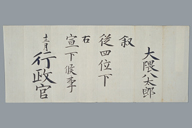 大隈八太郎
叙
従四位下
右
宣下候事
十二月
行政官